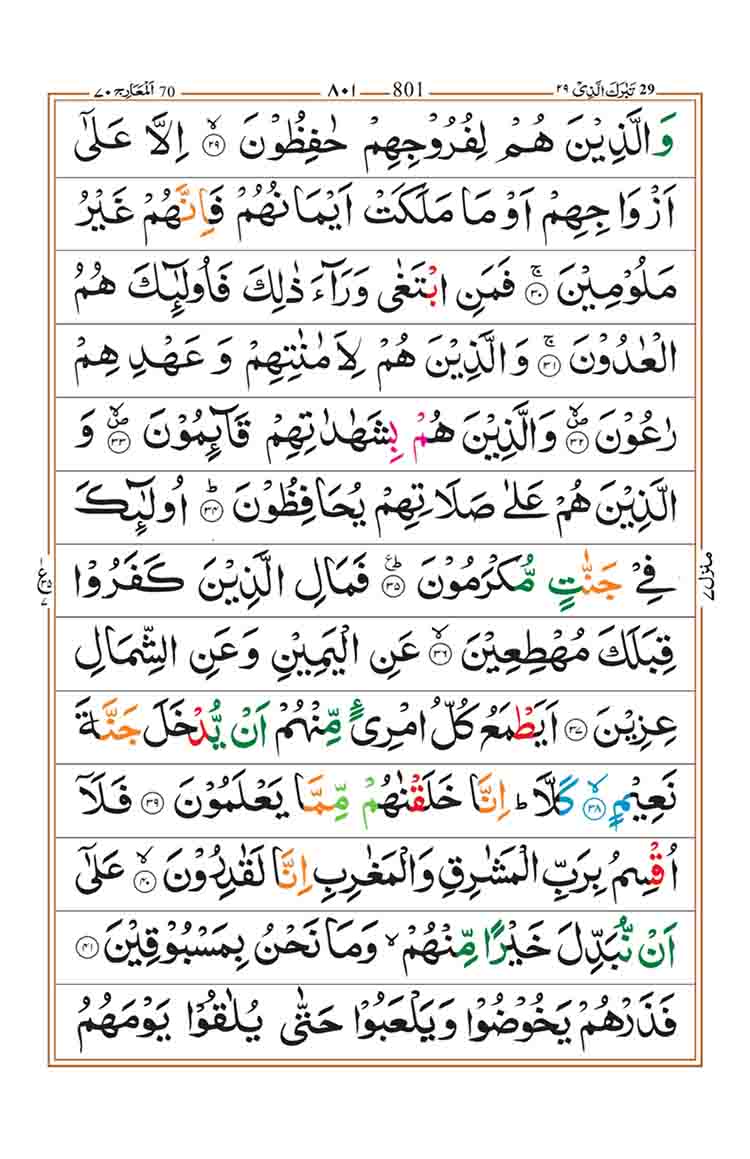 29 تَبٰرَكَ الَّذِیْ ۲۹ 801 ۸۰۱ 70 اَلْمَعَارِج ۷۰
وَالَّذِیْنَ هُمْ لِفُرُوْجِهِمْ حٰفِظُوْنَ ۙ‏﴿۲۹﴾ اِلَّا عَلٰۤی
اَزْوَاجِهِمْ اَوْ مَا مَلَكَتْ اَیْمَانُهُمْ فَاِنَّهُمْ غَیْرُ
مَلُوْمِیْنَ ۚ‏﴿۳۰﴾ فَمَنِ ابْتَغٰی وَرَآءَ ذٰلِكَ فَاُولٰٓئِكَ هُمُ
الْعٰدُوْنَ ۚ‏﴿۳۱﴾ وَالَّذِیْنَ هُمْ لِاَمٰنٰتِهِمْ وَ عَهْدِهِمْ
رٰعُوْنَ ۪ۙ‏﴿۳۲﴾ وَالَّذِیْنَ هُمْ بِشَهٰدٰتِهِمْ قَآئِمُوْنَ ۪ۙ‏﴿۳۳﴾ وَ
الَّذِیْنَ هُمْ عَلٰی صَلَاتِهِمْ یُحَافِظُوْنَ ؕ‏﴿۳۴﴾ اُولٰٓئِكَ
فِیْ جَنّٰتٍ مُّكْرَمُوْنَ ؕ‏﴿۳۵﴾ فَمَالِ الَّذِیْنَ كَفَرُوْا
قِبَلَكَ مُهْطِعِیْنَ ۙ‏﴿۳۶﴾ عَنِ الْیَمِیْنِ وَعَنِ الشِّمَالِ
عِزِیْنَ ‏﴿۳۷﴾ اَیَطْمَعُ كُلُّ امْرِیٴٍ مِّنْهُمْ اَنْ یُّدْخَلَ جَنَّةَ
نَعِیْمٍ ۙ‏﴿۳۸﴾ كَلَّا ؕ اِنَّا خَلَقْنٰهُمْ مِّمَّا یَعْلَمُوْنَ ‏﴿۳۹﴾ فَلَاۤ
اُقْسِمُ بِرَبِّ الْمَشٰرِقِ وَالْمَغٰرِبِ اِنَّا لَقٰدِرُوْنَ ۙ‏﴿۴۰﴾ عَلٰۤی
اَنْ نُّبَدِّلَ خَیْرًا مِّنْهُمْ ۙ وَمَا نَحْنُ بِمَسْبُوْقِیْنَ ‏﴿۴۱﴾
فَذَرْهُمْ یَخُوْضُوْا وَیَلْعَبُوْا حَتّٰی یُلٰقُوْا یَوْمَهُمُ
منزل ۷